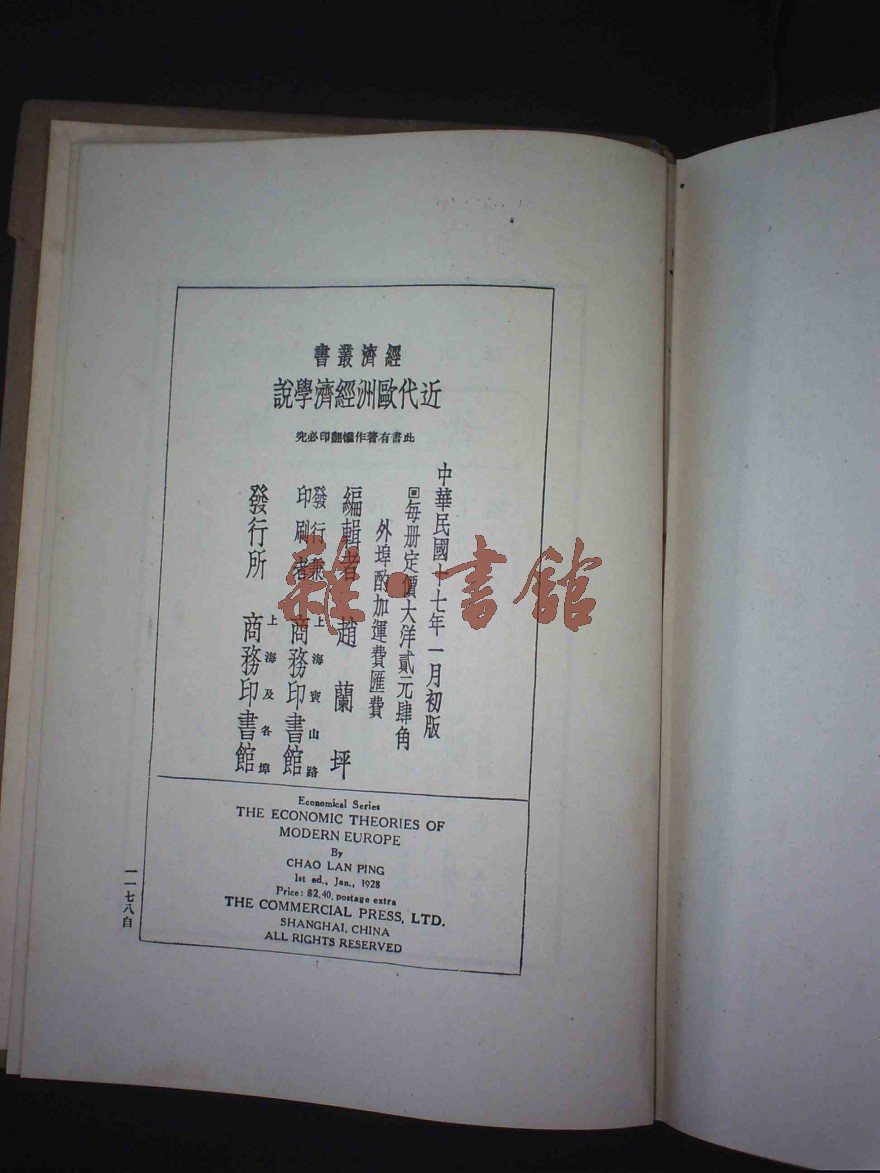 經濟叢書
近代歐洲經濟學說
此書有著作權翻印必究
中華民國十七年一月初版
回每册定價大洋貳元肆角
外埠酌加運費匯費
編輯者 趙蘭坪
發行兼印刷者 上海寶山路 商務印書館
發行所 上海及各埠 商務印書館
Economical Series
THE ECONOMIC THEORIES OF
MODERN EUROPE
By
CHAO LAN PING
1st ed., Jan., 1928
Price: $2.40, postage extra
THE COMMERCIAL PRESS, LTD.
SHANGHAI, CHINA
ALL RIGHTS RESERVED
一一七八自
雜·書館